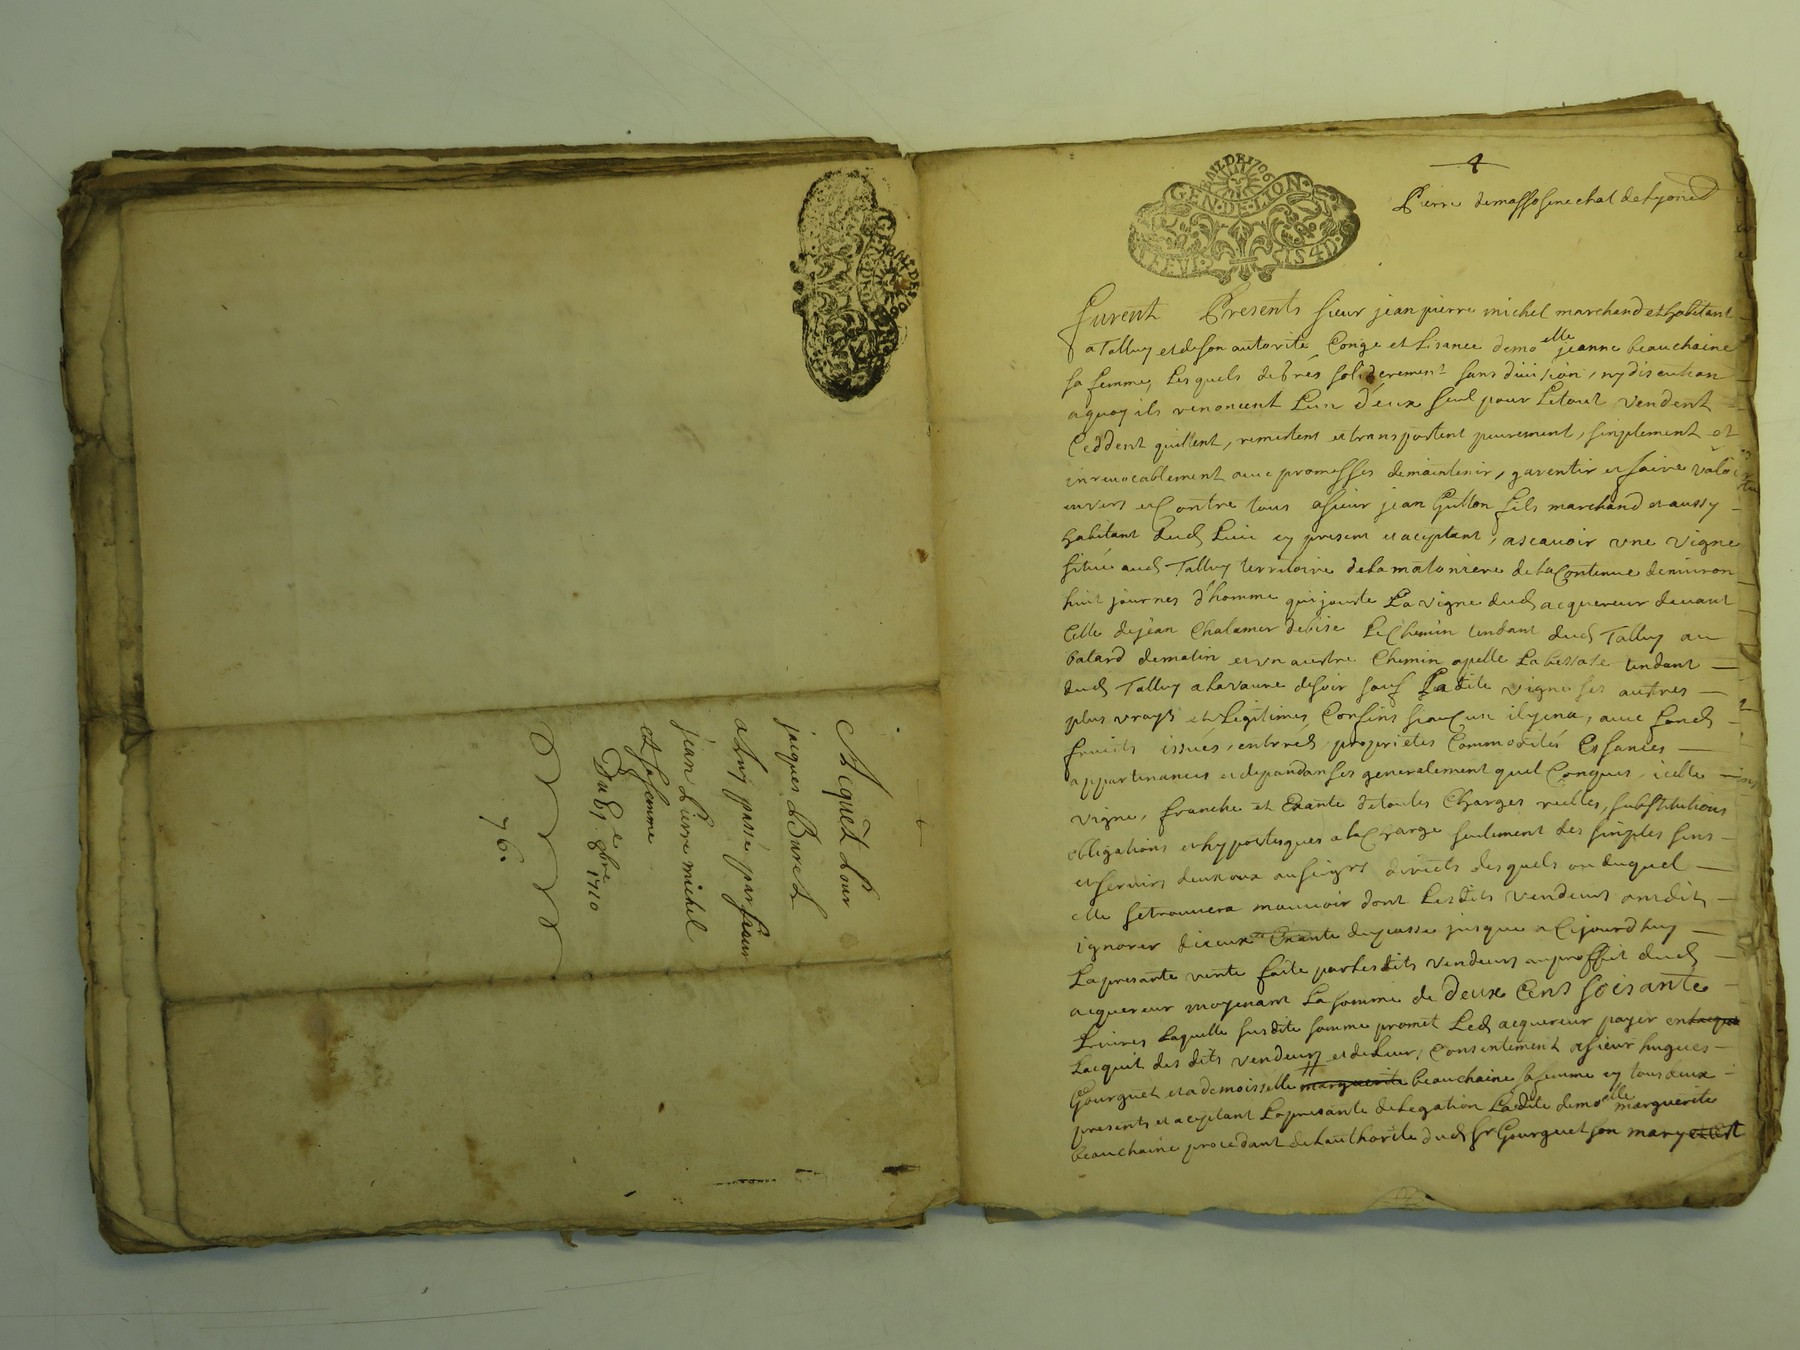 Acquêt pour
jacques Buret
a luy passé par sieur
jean Pierre michel
et sa femme
Du 81.e 9bre 1710
76.
GEN·DE·LION·
4
Pierre de masso senechal de Lyon
Furent Presents sieur jean pierre michel marchand et habitant
a Talluy et de son autorite Conge et Lisance demoelle jeanne beauchaine
sa femme, Lesquels de bres soliderement sans diuision, ny discution
a quoy ils renoncent L'un d'eux seul pour Letout vendent
Ceddent quittent, remettent et transportent purement, simplement et
inreuocablement auec promesses de maintenir, garentir et faire valoir
enuers et Contre tous a sieur jean Gutton fils marchand et aussy
habitant dud Lieu cy present et aceptant, ascauoir vne vigne
situéé aud Talluy territoire de la matoniere de la Contenue denuiron
huit journes d'homme qui jouste La vigne dud acquereur deuant
Celle de jean Chalamer de bise Le Chemin tendant dud Talluy au
batard de matin et vn austre Chemin apelle La bessate tendant
dud Talluy a Lavaure de soir sauf Ladite vigne ses autres
plus vrays et Legitimes Confins si aucun il y en a, auec fonds
fruicts issues, entrées proprietes Commodités Essances
appartenances et dependanses generalement quel Conques, icelle
vigne, franche et Exante de toutes Charges vielles, substitutions
obligations et hypotesques a la Charge seulement des simples sens
et seruis deux aux au seigrs directs desquels ou duquel
elle se trouuera mouuoir dont Lesdits vendeurs ont dit
ignorer diceux Exante du passe jusque a Cijourdhuy
La presante vente faite par les dits vendeurs au proffit dud
acquereur moyenant La somme de deux Cens soisante
Liuires Laquelle susdite somme promet Led acquereur payer en
Lacquit des dits vendeurs et de Leur, Consentement a sieur hugues
Gourguet et a demoisselle marguerite beauchaine sa femme cy tous deux
presents et aceptant La presante delegation Ladite demoelle marguerite
beauchaine procedant de Lauthorité dud Sr Gourguet son mary